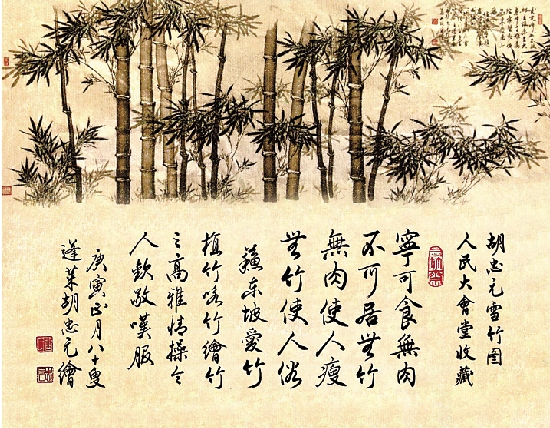 胡忠元雪竹图
人民大會堂收藏
寧可食無肉
不可居無竹
無肉使人瘦
無竹使人俗
蘇東坡愛竹
植竹咏竹繪竹
之高雅情操令
人欽敬嘆服
庚寅正月八十叟
蓬莱胡忠元繪